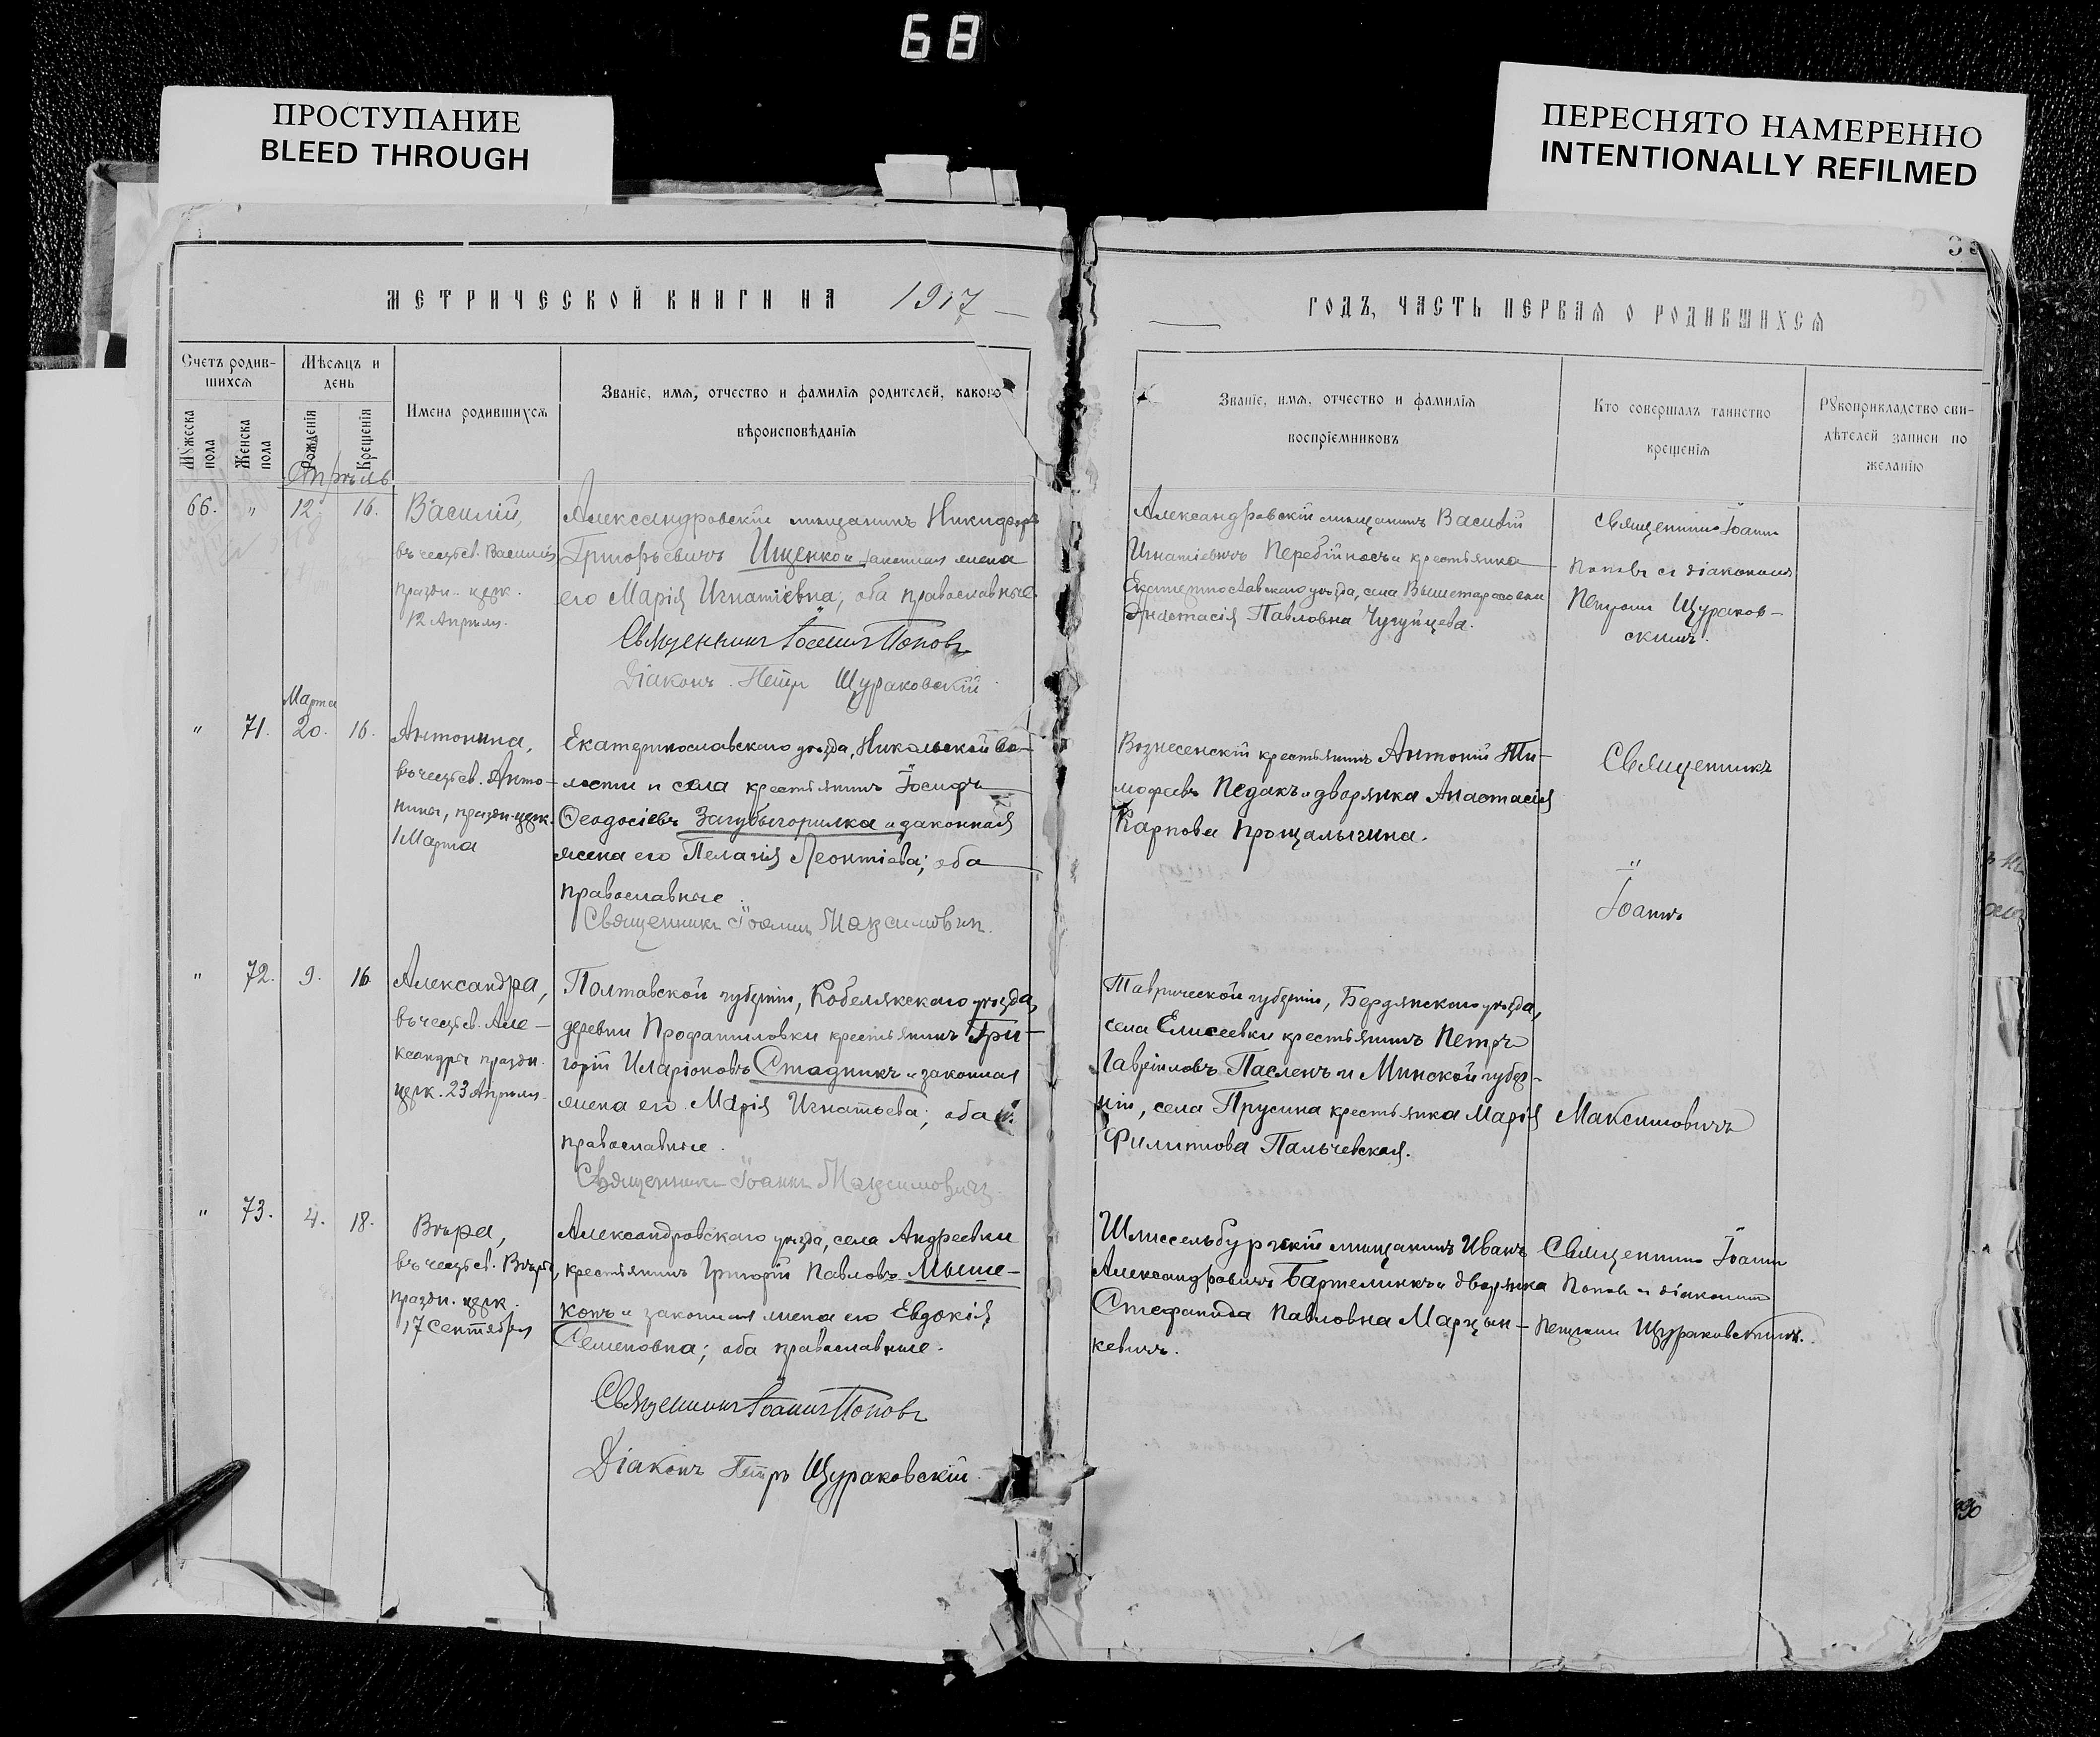 68
ПРОСТУПАНИЕ
BLEED THROUGH
ПЕРЕСНЯТО НАМЕРЕННО
INTENTIONALLY REFILMED
МЕТРИЧЕСКОЙ КНИГИ НА 1917
Счетъ родив-
шихся
Мѣсяцъ и
день
Мужеска
пола
Женска
пола
Рожденія
Крещенія
Имена родившихся
Званіе, имя, отчество и фамилія родителей, какого
вѣроисповѣданія
Апрѣль
66. " 12. 16.
Василій,
въ честь св. Василія
праздн. церк.
12 Апрѣля.
Александровскій мѣщанинъ Никифоръ
Григорьевичъ Ищенко и законная жена
его Марія Игнатіевна; оба православные.
Священникъ Іоаннъ Поповъ
Діаконъ Петръ Щураковскій
Марта
" 71. 20. 16.
Антонина,
въ честь св. Анто-
нины, праздн. церк.
1 Марта
Екатеринославскаго уѣзда, Никольской во-
лости и села крестьянинъ Іосифъ
Ѳеодосіевъ Загубыгорилка и законная
жена его Пелагія Леонтіева; оба
православные.
Священникъ Іоаннъ Максимовичъ.
" 72. 9. 16
Александра,
въ честь св. Але-
ксандры праздн.
церк. 23 Апрѣля.
Полтавской губерніи, Кобелякскаго уѣзда,
деревни Профатиловки крестьянинъ Гри-
горій Иларіоновъ Стадникъ и законная
жена его Марія Игнатьева; оба
православные.
Священникъ Іоаннъ Максимовичъ.
" 73. 4. 18.
Вѣра,
въ честь св. Вѣры,
праздн. церк.
17 Сентября
Александровскаго уѣзда, села Андреевки
крестьянинъ Григорій Павловъ Мыше-
копъ и законная жена его Евдокія
Семеновна; оба православные.
Священникъ Іоаннъ Поповъ
Діаконъ Петръ Щураковскій.
ГОДЪ, ЧАСТЬ ПЕРВАЯ О РОДИВШИХСЯ
Званіе, имя, отчество и фамилія
воспріемниковъ
Кто совершалъ таинство
крещенія
Рукоприкладство сви-
дѣтелей записи по
желанію
Александровскій мѣщанинъ Василій
Игнатіевичъ Перебійносъ и крестьянка
Екатеринославскаго уѣзда, села Вышетарасовки
Анастасія Павловна Чугуйцева.
Священникъ Іоаннъ
Поповъ съ діакономъ
Петромъ Щураков-
скимъ.
Вознесенскій крестьянинъ Антоній Ти-
мофеевъ Педакъ и дворянка Анастасія
Карпова Прощалыгина.
Священникъ
"
Іоаннъ
Таврической губерніи, Бердянскаго уѣзда,
села Елисеевки крестьянинъ Петръ
Гавріиловъ Пасленъ и Минской губер-
ніи, села Прусина крестьянка Марія
Филиппова Пальчевская.
Максимовичъ
Шлиссельбургскій мѣщанинъ Иванъ
Александровичъ Бартелинкъ и дворянка
Стефанида Павловна Марцын-
кевичъ.
Священникъ Іоаннъ
Поповъ съ діакономъ
Петромъ Щураковскимъ.